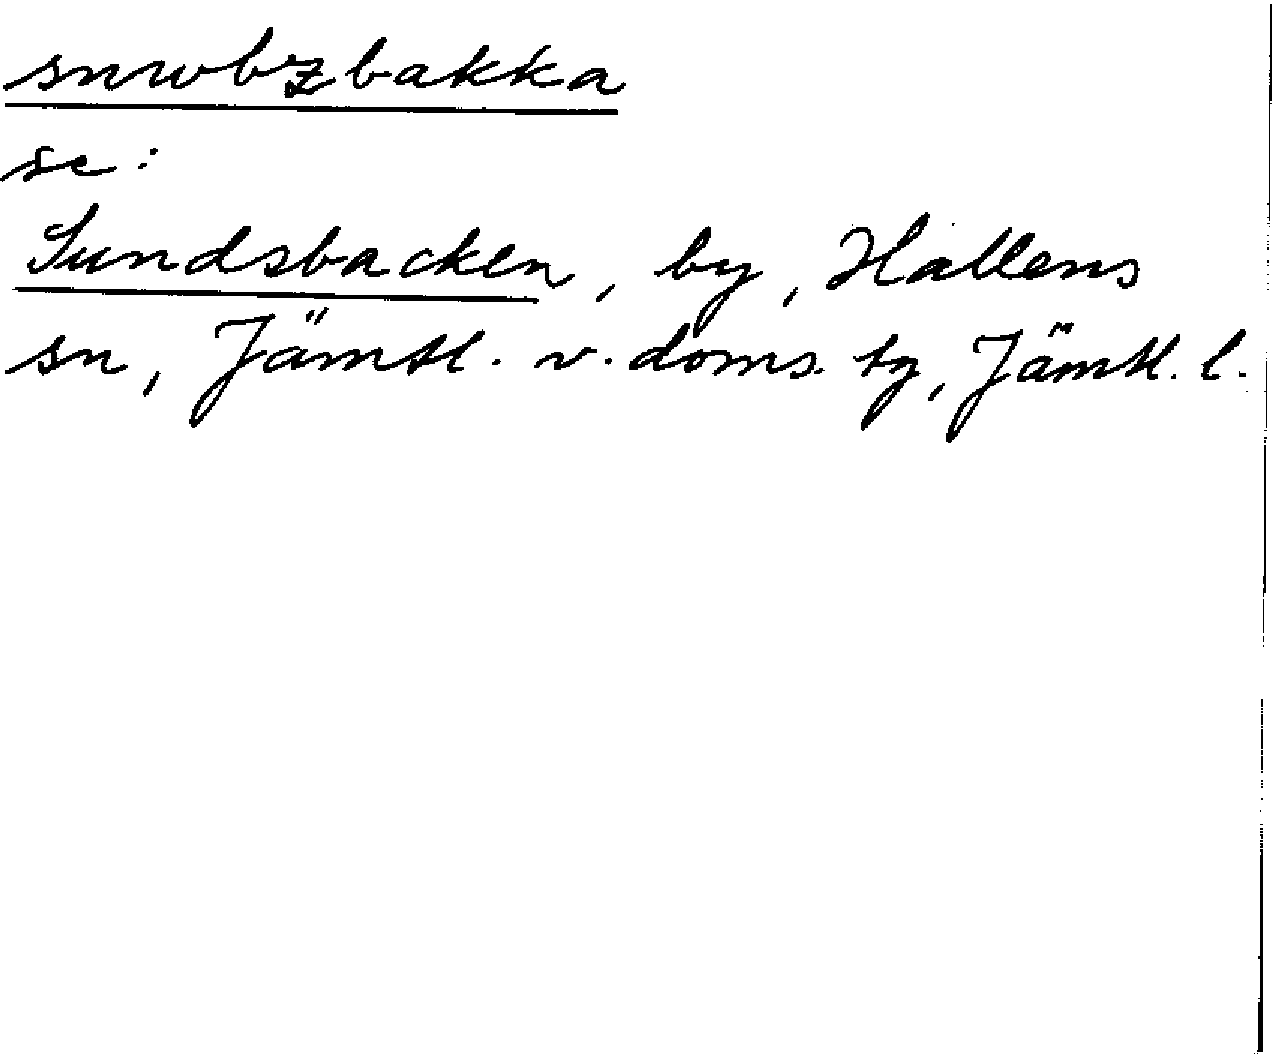 snwbzbakka
se:
Sundsbacken, by, Hallens
sn, Jämtl. v. doms. tg, Jämtl. l.